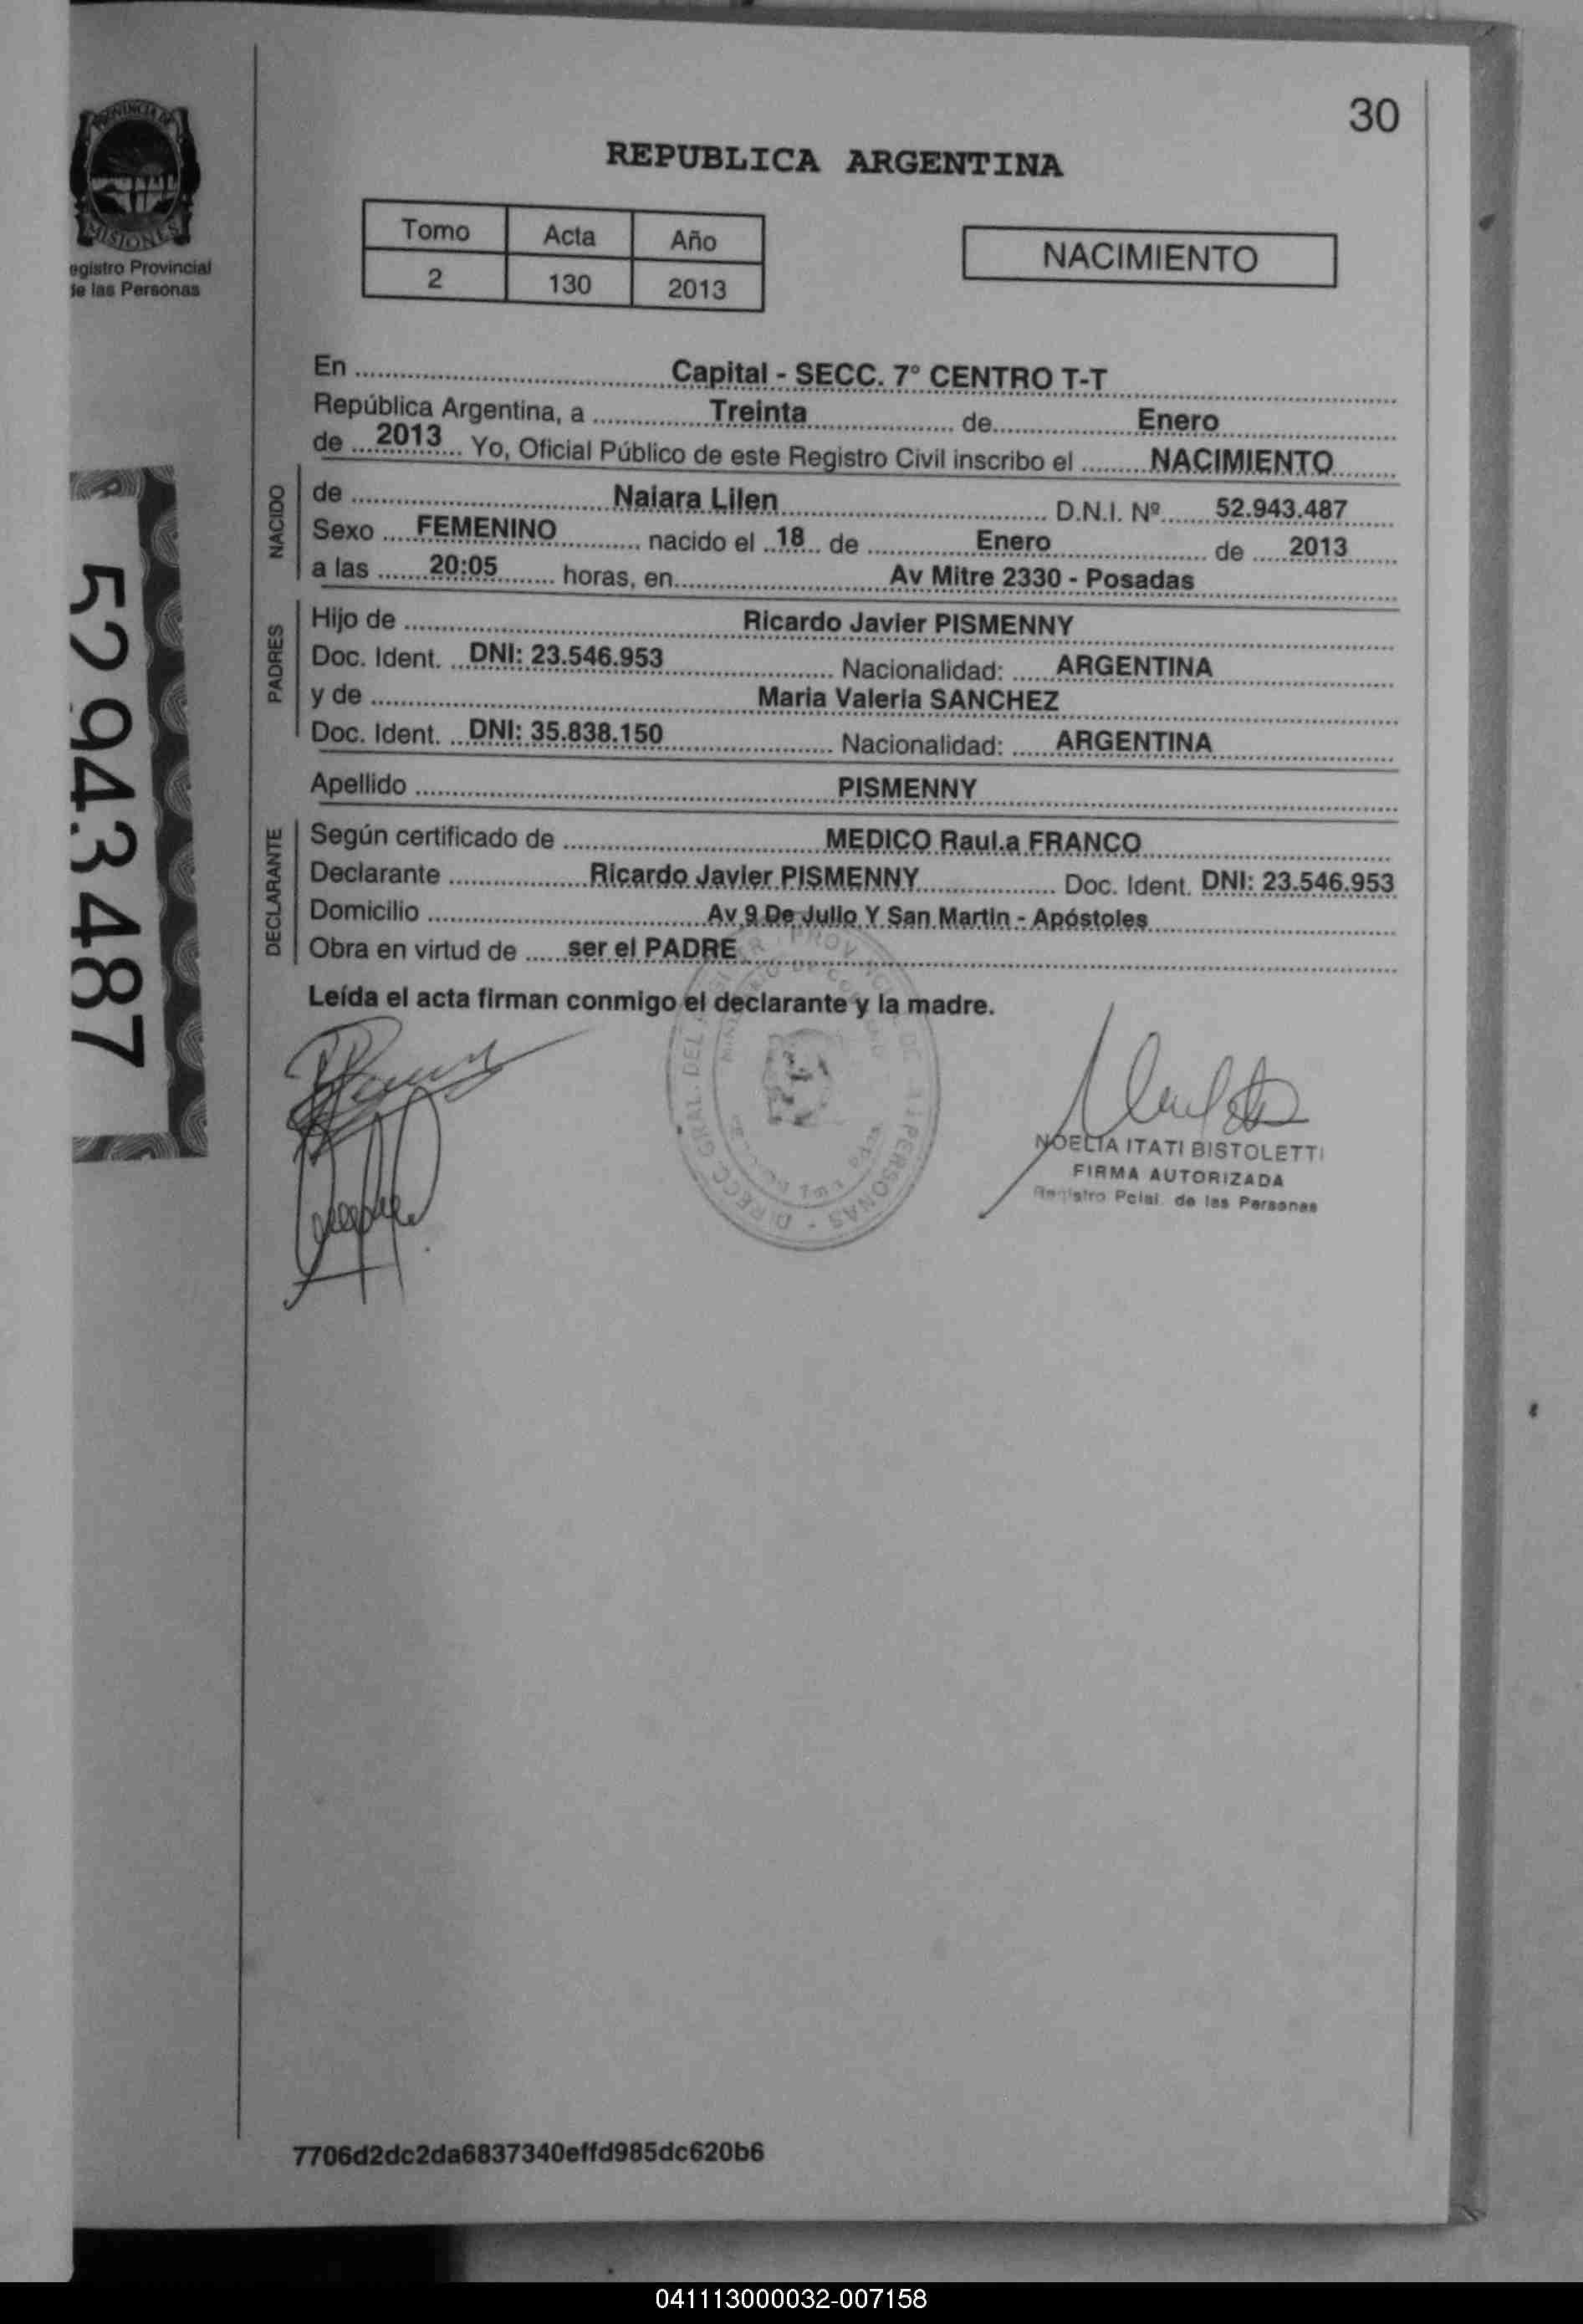 30
PROVINCIA DE
MISIONES
egistro Provincial
de las Personas
REPUBLICA ARGENTINA
Tomo Acta Año
2 130 2013
NACIMIENTO
En Capital - SECC. 7° CENTRO T-T
República Argentina, a Treinta de Enero
de 2013 Yo, Oficial Público de este Registro Civil inscribo el NACIMIENTO
NACIDO
de Naiara Lilen D.N.I. Nº 52.943.487
Sexo FEMENINO nacido el 18 de Enero de 2013
a las 20:05 horas, en Av Mitre 2330 - Posadas
PADRES
Hijo de Ricardo Javier PISMENNY
Doc. Ident. DNI: 23.546.953 Nacionalidad: ARGENTINA
y de Maria Valeria SANCHEZ
Doc. Ident. DNI: 35.838.150 Nacionalidad: ARGENTINA
Apellido PISMENNY
DECLARANTE
Según certificado de MEDICO Raul.a FRANCO
Declarante Ricardo Javier PISMENNY Doc. Ident. DNI: 23.546.953
Domicilio Av 9 De Julio Y San Martin - Apóstoles
Obra en virtud de ser el PADRE
Leída el acta firman conmigo el declarante y la madre.
52943487
NOELIA ITATI BISTOLETTI
FIRMA AUTORIZADA
Registro Pcial. de las Personas
7706d2dc2da6837340effd985dc620b6
041113000032-007158